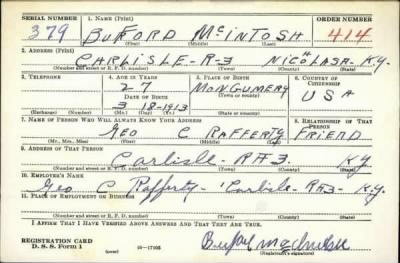 SERIAL NUMBER 1. NAME (Print) ORDER NUMBER
379 BUFORD McINTOSH 414
(First) (Middle) (Last)
2. ADDRESS (Print)
CARLISLE - R-3 NICHOLASA - KY.
(Number and street or R. F. D. number) (Town) (County) (State)
3. TELEPHONE 4. AGE IN YEARS 5. PLACE OF BIRTH 6. COUNTRY OF CITIZENSHIP
27 MONGUMERY USA
DATE OF BIRTH (Town or county)
3 18-1913
(Exchange) (Number) (Mo.) (Day) (Yr.) (State or country)
7. NAME OF PERSON WHO WILL ALWAYS KNOW YOUR ADDRESS 8. RELATIONSHIP OF THAT PERSON
GEO C RAFFERTY FRIEND
(Mr., Mrs., Miss) (First) (Middle) (Last)
9. ADDRESS OF THAT PERSON
Carlisle - R#3. Ky
(Number and street or R. F. D. number) (Town) (County) (State)
10. EMPLOYER'S NAME
Geo C Rafferty - Carlisle - R#3 - Ky.
11. PLACE OF EMPLOYMENT OR BUSINESS
(Number and street or R. F. D. number) (Town) (County) (State)
I AFFIRM THAT I HAVE VERIFIED ABOVE ANSWERS AND THAT THEY ARE TRUE.
REGISTRATION CARD
D. S. S. Form 1 16-17105
(Registrant's signature)